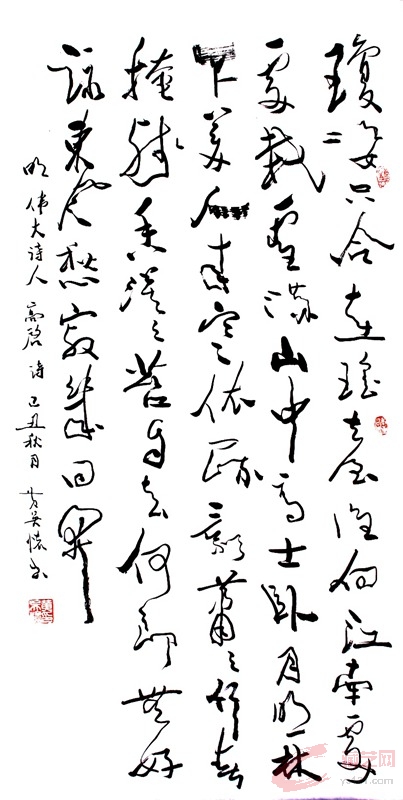 瓊姿只合在瑶台谁向江南处
处栽雪满山中高士卧月明林
下美人来寒依疏影萧萧竹春
掩残香漠漠苔自去何郎无好
詠東风愁寂几回开
明 伟大诗人 高启 诗 己丑秋月 书